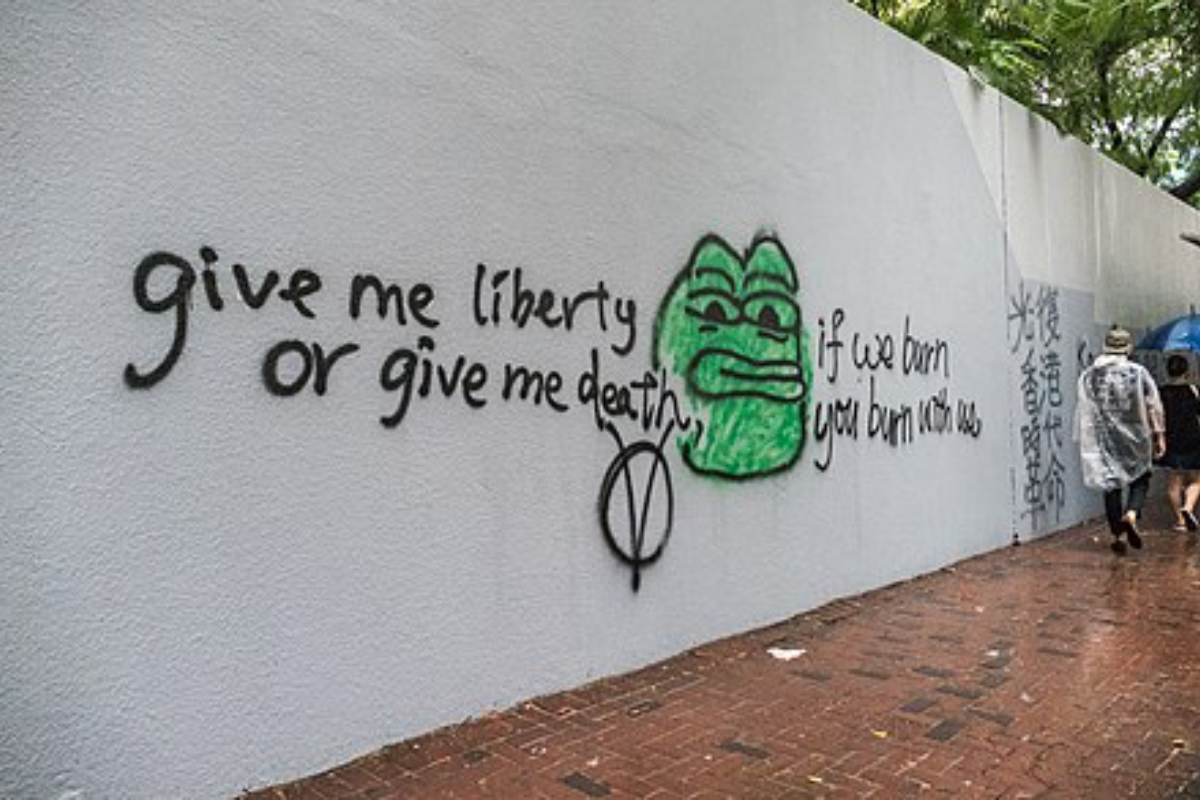 give me liberty
or give me death,
if we burn
you burn with us
光復
香港
時代
革命